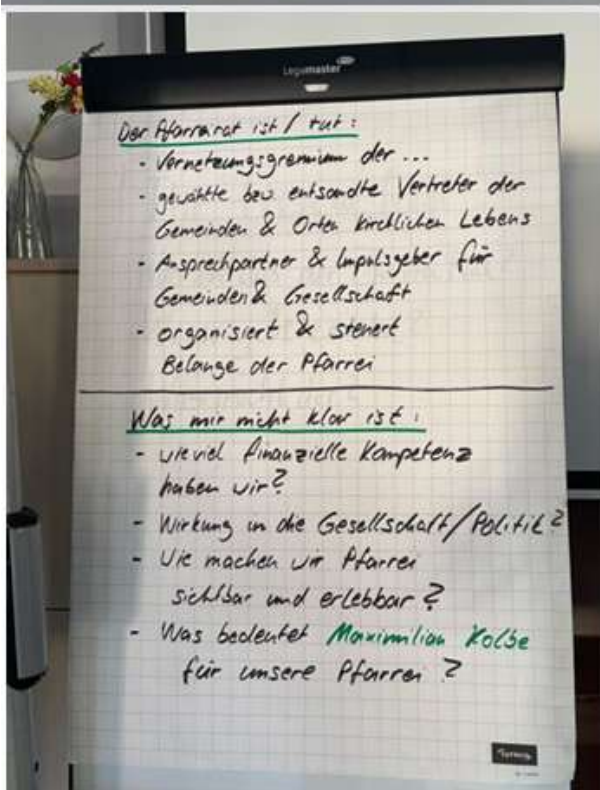 Legamaster
Der Pfarreirat ist / tut:
- Vernetzungsgremium der ...
- gewählte bzw entsandte Vertreter der
Gemeinden & Orten kirchlichen Lebens
- Ansprechpartner & Impulsgeber für
Gemeinden & Gesellschaft
- organisiert & steuert
Belange der Pfarrei
Was mir nicht klar ist:
- wieviel finanzielle Kompetenz
haben wir?
- Wirkung in die Gesellschaft/Politik?
- Wie machen wir Pfarrei
sichtbar und erlebbar?
- Was bedeutet Maximilian Kolbe
für unsere Pfarrei?